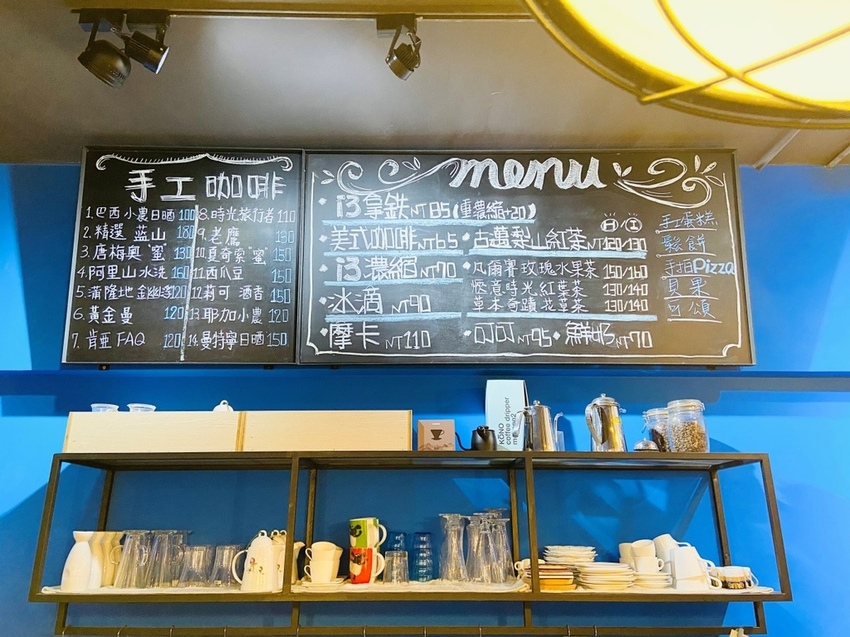 手工咖啡
1.巴西小農日晒 100
2.精選藍山 180
3.唐梅奧"蜜" 130
4.阿里山水洗 160
5.蒲隆地 120
6.黃金曼 120
7.肯亞FAQ 120
8.時光旅行者 110
9.老鷹 130
10.夏奇索"蜜" 150
11.西爪豆 150
12.莉可 酒香 150
13.耶加小農 120
14.曼特寧日晒 150
menu
i3拿鉄NT85(重濃縮+20)
美式咖啡NT65
i3濃縮NT70
冰滴NT90
摩卡NT110
H/I
古萬梨山紅茶NT130/130
凡爾賽玫瑰水果茶 150/160
愜意時光紅葉茶 130/140
草本奇蹟花草茶 130/140
可可NT95 鮮奶NT70
手工蛋糕
鬆餅
手拍Pizza
貝果
可頌
KŌNO
coffee dripper